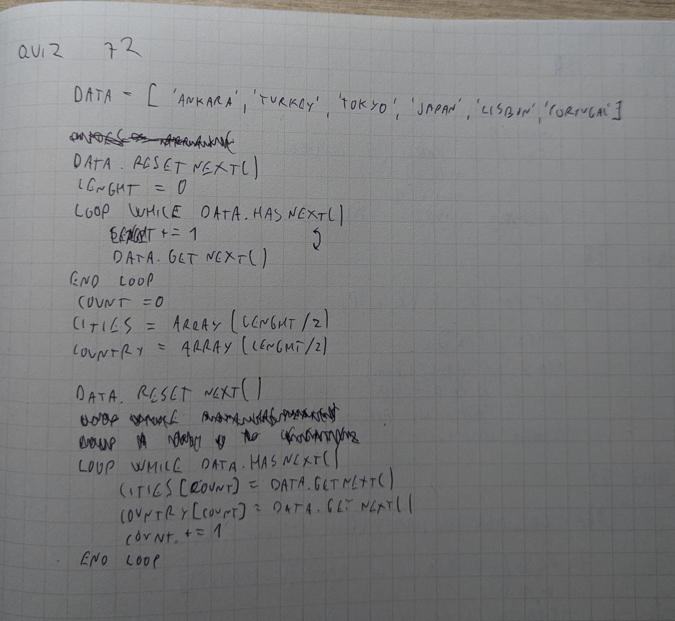 QUIZ 72
DATA = [ 'ANKARA', 'TURKEY', 'TOKYO', 'JAPAN', 'LISBON', 'PORTUGAL' ]
DATA. RESET NEXT()
LENGHT = 0
LOOP WHILE DATA. HAS NEXT()
LENGHT += 1
DATA. GET NEXT()
END LOOP
COUNT = 0
CITIES = ARRAY (LENGHT/2)
COUNTRY = ARRAY (LENGHT/2)
DATA. RESET NEXT()
LOOP WHILE DATA. HAS NEXT()
CITIES [COUNT] = DATA. GET NEXT()
COUNTRY [COUNT] = DATA. GET NEXT()
COUNT += 1
END LOOP